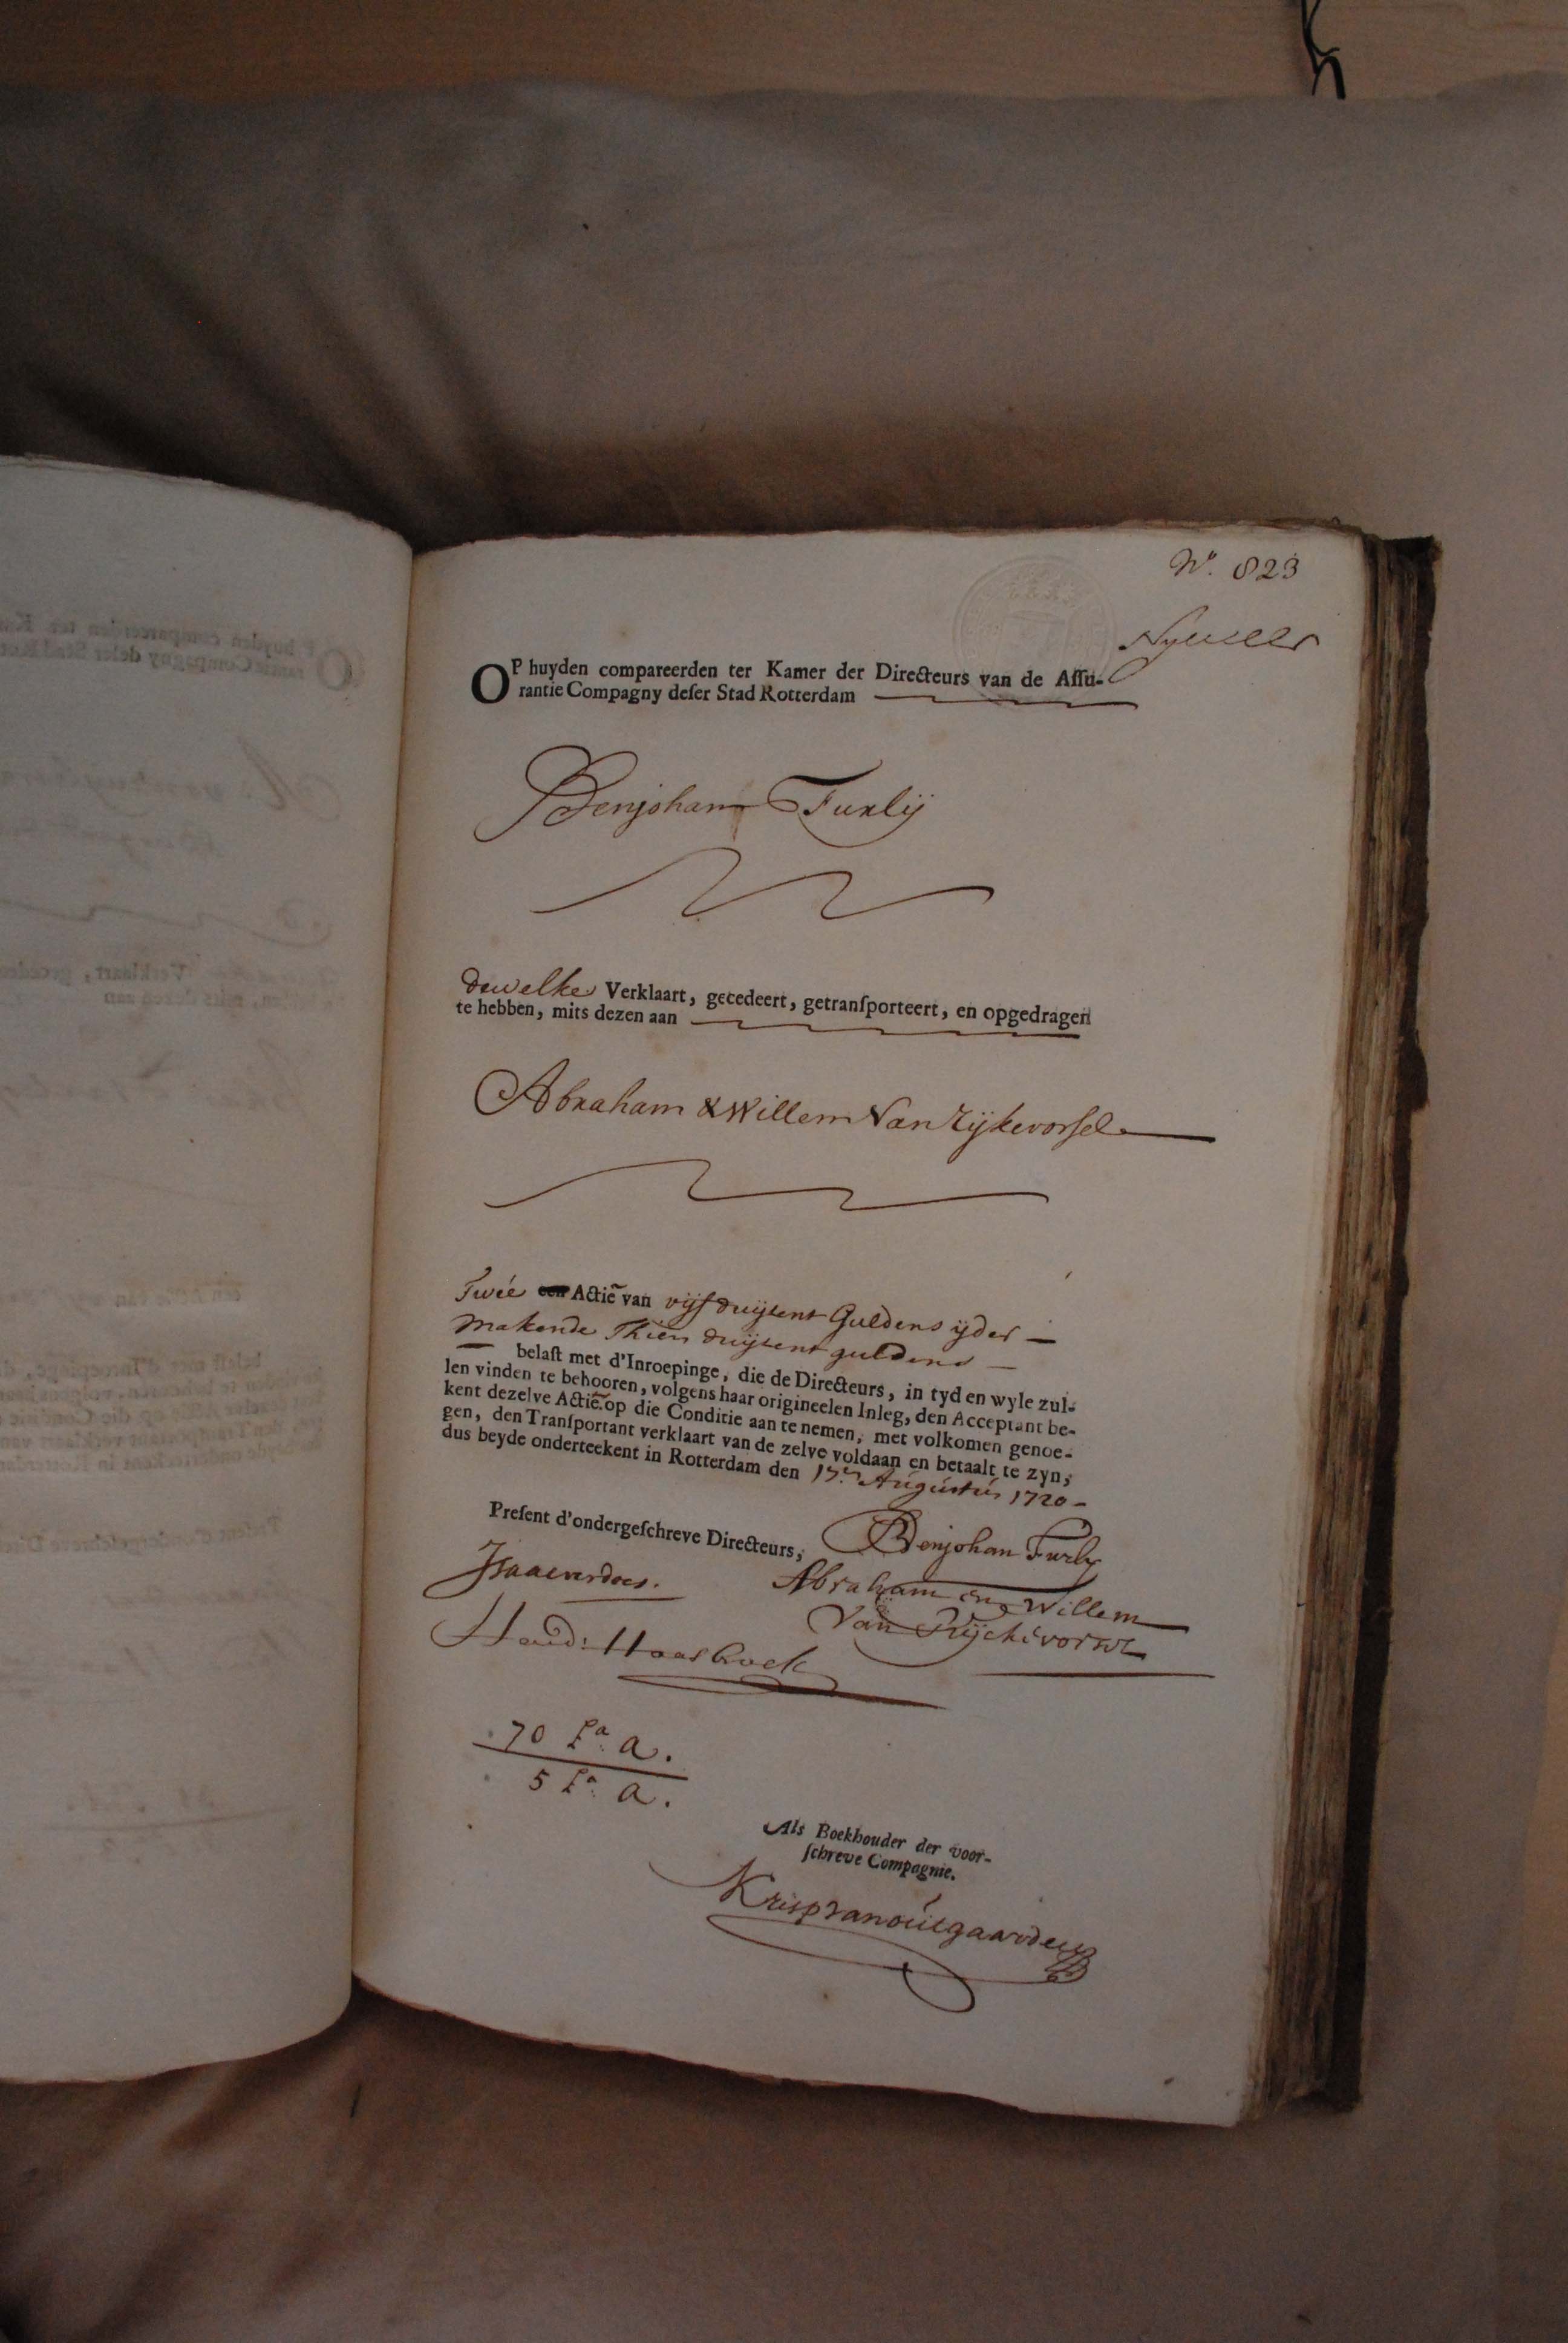 N.º 823
OP huyden compareerden ter Kamer der Directeurs van de Assu-
rantie Compagny deser Stad Rotterdam
Benjohan Furlij
dewelke Verklaart, gecedeert, getransporteert, en opgedragen
te hebben, mits dezen aan
Abraham & Willem Van Rijkevorsel
Twée een Actiē van vijf duijsent Guldens ijder
makende Thien duijsent guldens
belast met d'Inroepinge, die de Directeurs, in tyd en wyle zul-
len vinden te behooren, volgens haar origineelen Inleg, den Acceptant be-
kent dezelve Actiē op die Conditie aan te nemen, met volkomen genoe-
gen, den Transportant verklaart van de zelve voldaan en betaalt te zyn,
dus beyde onderteekent in Rotterdam den 17.en Augustus 1720
Present d'ondergeschreve Directeurs,
Benjohan Furly
Abraham en Willem
Van Rijckevorsel
70 a.
5 a.
Als Boekhouder der voor-
schreve Compagnie.